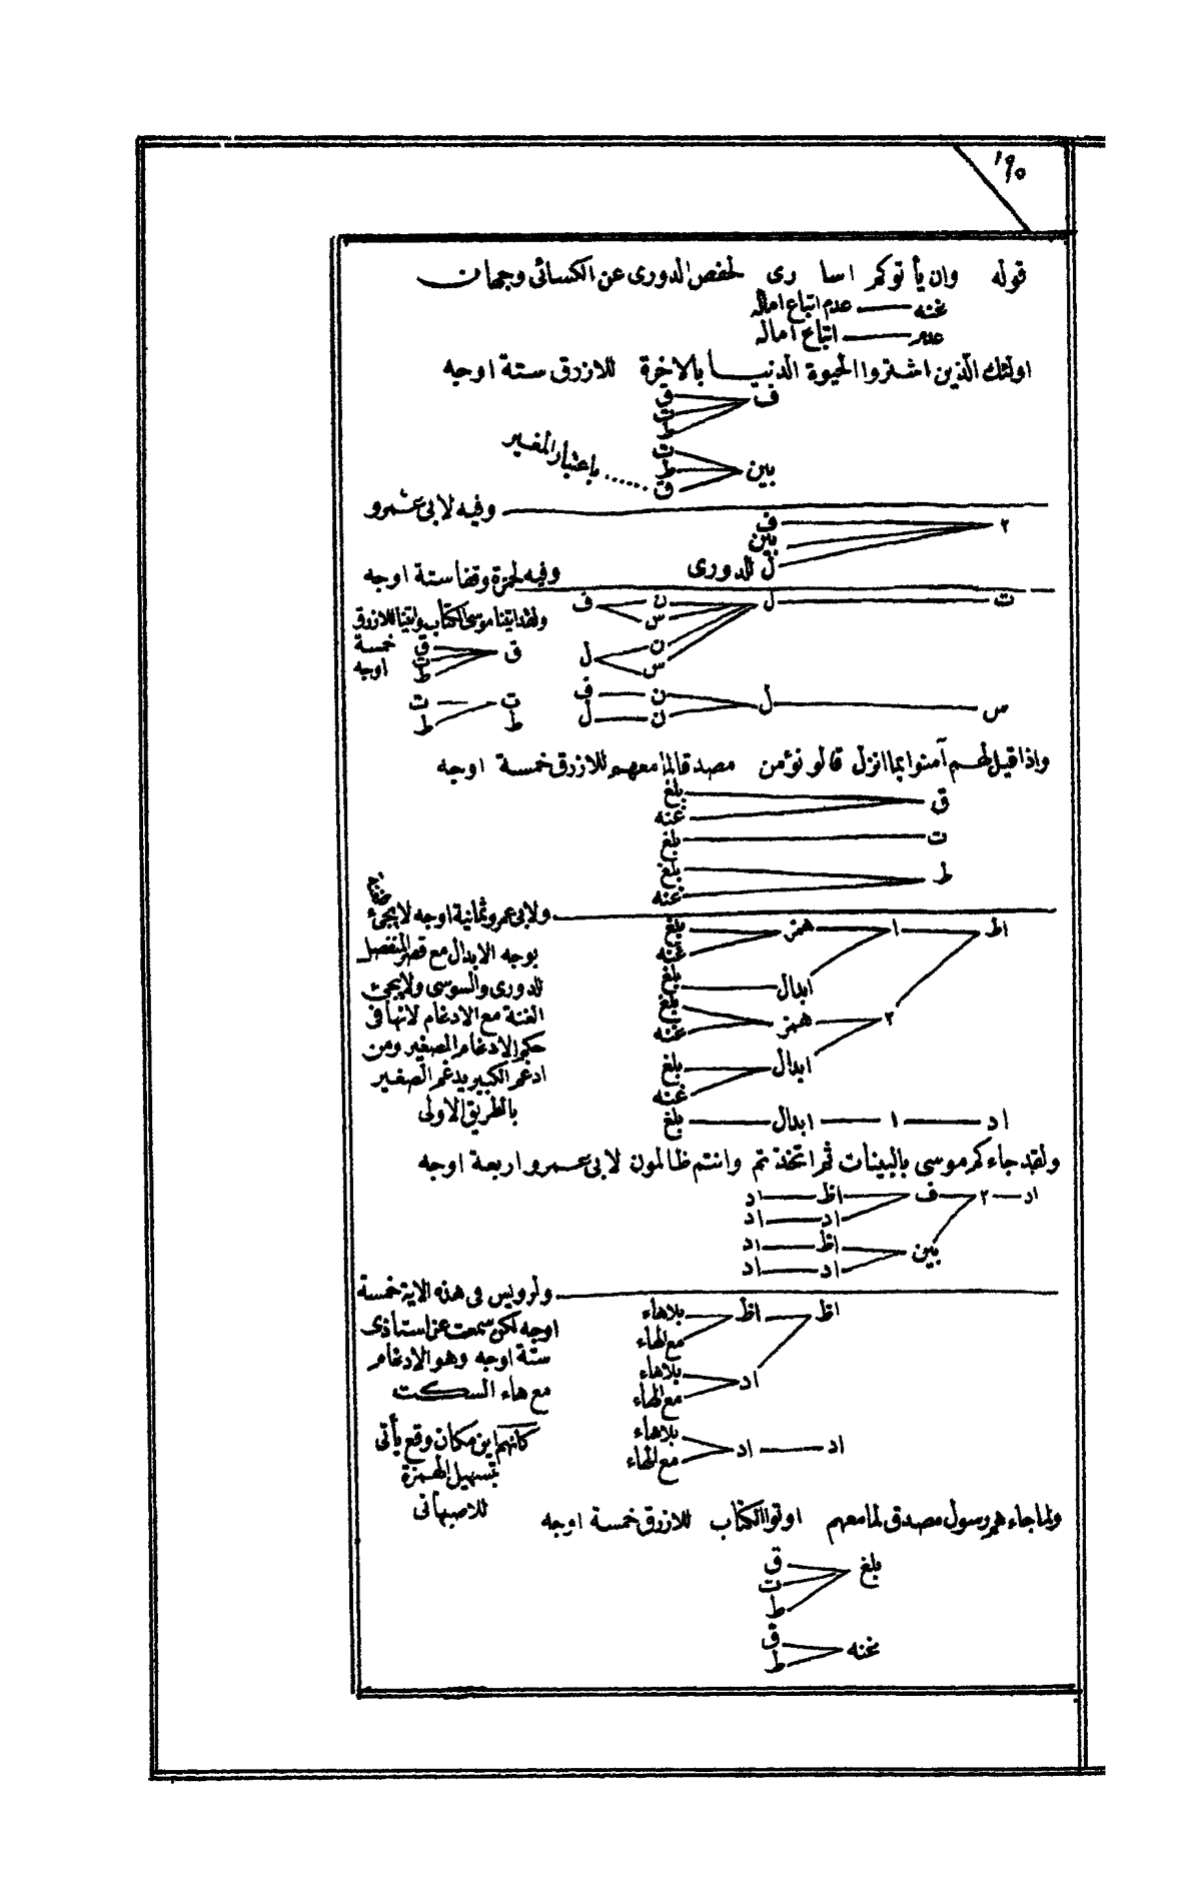 ١٩٥
قوله وان يأتوكم اسا رى لحفص الدورى عن الكسائى وجهان
غنه عدم اتباع اماله
عدم اتباع اماله
اولئك الذين اشتروا الحيوة الدنيا بالاخرة للازرق ستة اوجه
ف ق
ت
ط
بين ت
ط
ق باعتبار المغير
وفيه لابى عمرو
٢ ف
بين
ل للدورى
وفيه لحمزة وقفا ستة اوجه
ت ل ن ف
س
ن ل
س
س ل ن ف
ن ل
ولقد اتينا موسى الكتاب واتينا للازرق
خمسة
اوجه
ق ق
ت
ط
ت ت
ط ط
واذا قيل لهم آمنوا بما انزل قالو نؤمن مصدقا لما معهم للازرق خمسة اوجه
ق بلغ
غنه
ت بلغ
ط بلغ
غنه
ولابى عمرو ثمانية اوجه لا يجئ
بوجه الابدال مع قصر المنفصل
للدورى والسوسى ولا يجئ
الغنة مع الادغام لانها فى
حكم الادغام الصغير ومن
ادغم الكبير يدغم الصغير
بالطريق الاولى
اظ ١ همز بلغ
غنه
ابدال بلغ
٢ همز بلغ
غنه
ابدال بلغ
غنه
اد ١ ابدال بلغ
ولقد جاءكم موسى بالبينات ثم اتخذتم وانتم ظالمون لابى عمرو اربعة اوجه
اد ٢ ف اظ اد
اد اد
بين اظ اد
اد اد
ولرويس فى هذه الاية خمسة
اوجه لكن سمعت عن استاذى
ستة اوجه وهو الادغام
مع هاء السكت
اظ اظ بلاهاء
مع الهاء
اد بلاهاء
مع الهاء
اد اد بلاهاء
مع الهاء
كانهم اين مكان وقع يأتى
تسهيل الهمزة
للاصبهانى
ولما جاءهم رسول مصدق لما معهم اوتوا الكتاب للازرق خمسة اوجه
بلغ ق
ت
ط
غنه ق
ط